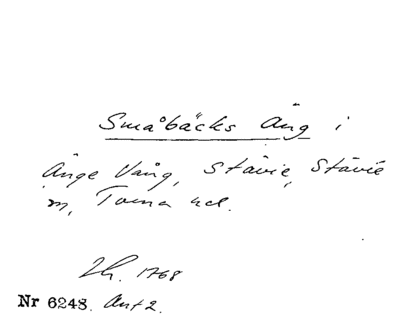 Småbäcks Äng i
Änge Vång, Stävie, Stävie
n, Torna hd.
Lh. 1768
Nr 6248. Ant 2.